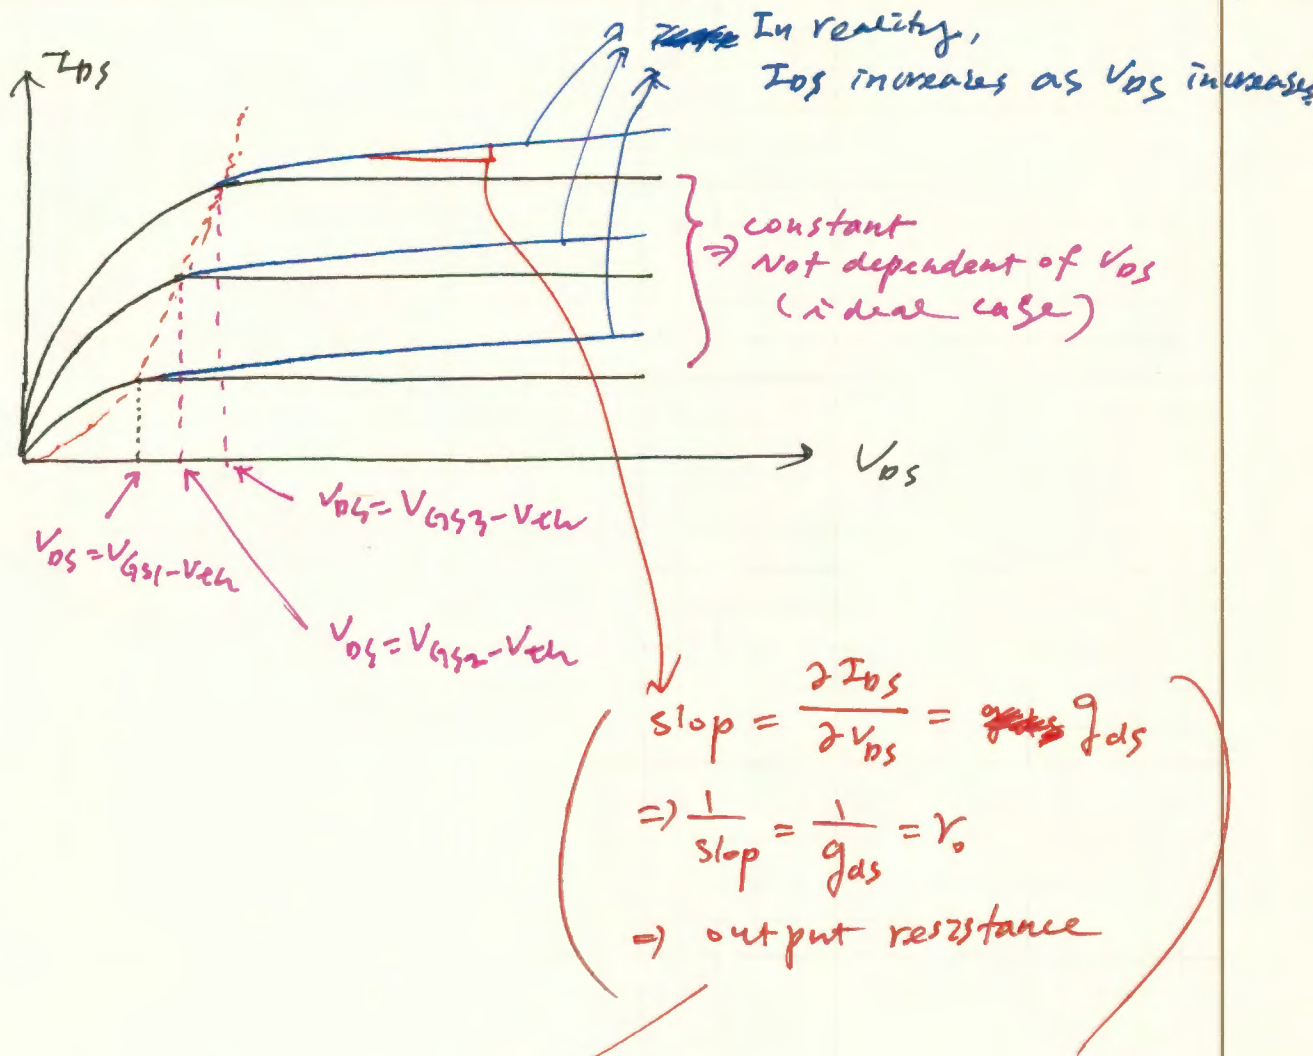 I_DS
In reality,
I_DS increases as V_DS increases
constant
Not dependent of V_DS
(ideal case)
V_DS
V_DS = V_GS3 - V_th
V_DS = V_GS1 - V_th
V_DS = V_GS2 - V_th
slop = ∂I_DS / ∂V_DS = g_ds
=> 1/slop = 1/g_ds = r_o
=> output resistance